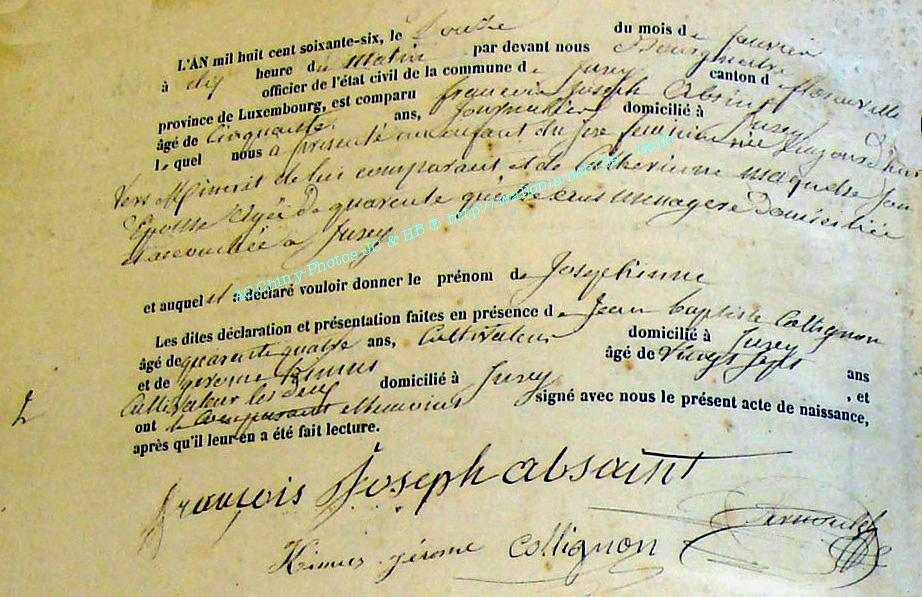 L'AN mil huit cent soixante-six, le Douze du mois de janvier
à dix heure du matin par devant nous Bourgmestre
officier de l'état civil de la commune de Jzey canton de florenville
province de Luxembourg, est comparu francois Joseph Absint
âgé de Cinquante ans, Journallier domicilié à Juzey
lequel nous a présenté un enfant du sexe feminin née aujourd'hui
vers Minuit de lui comparant et de Catherinne maquelle son
Epouse agée de quarente quatre ans menagere Domiciliée
et accouchée à Juzey
et auquel il a déclaré vouloir donner le prénom de Josephinne
Les dites déclaration et présentation faites en présence de Jean baptiste Collignon
âgé de quarente quatre ans, Cultivateur domicilié à Juzey
et de gerome Himus âgé de vingt sept ans
Cultivateur les deux domicilié à Juzey , et
ont le Comparant et temoins signé avec nous le présent acte de naissance,
après qu'il leur en a été fait lecture.
françois Joseph absaint
Himus jérome Collignon
AC Chiny Photos JC & HB ® http://